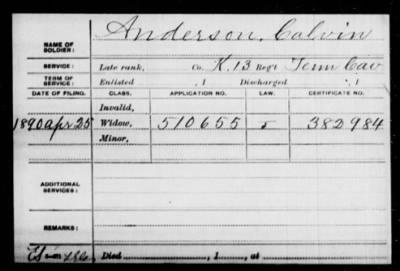 Anderson, Calvin
NAME OF SOLDIER:
SERVICE: Late rank, Co. K, 13 Reg't Tenn Cav
TERM OF SERVICE: Enlisted , 1 Discharged , 1
DATE OF FILING. CLASS. APPLICATION NO. LAW. CERTIFICATE NO.
Invalid,
1890 Apr 25 Widow, 510655 382984
Minor,
ADDITIONAL SERVICES:
REMARKS:
Died , 1 , at